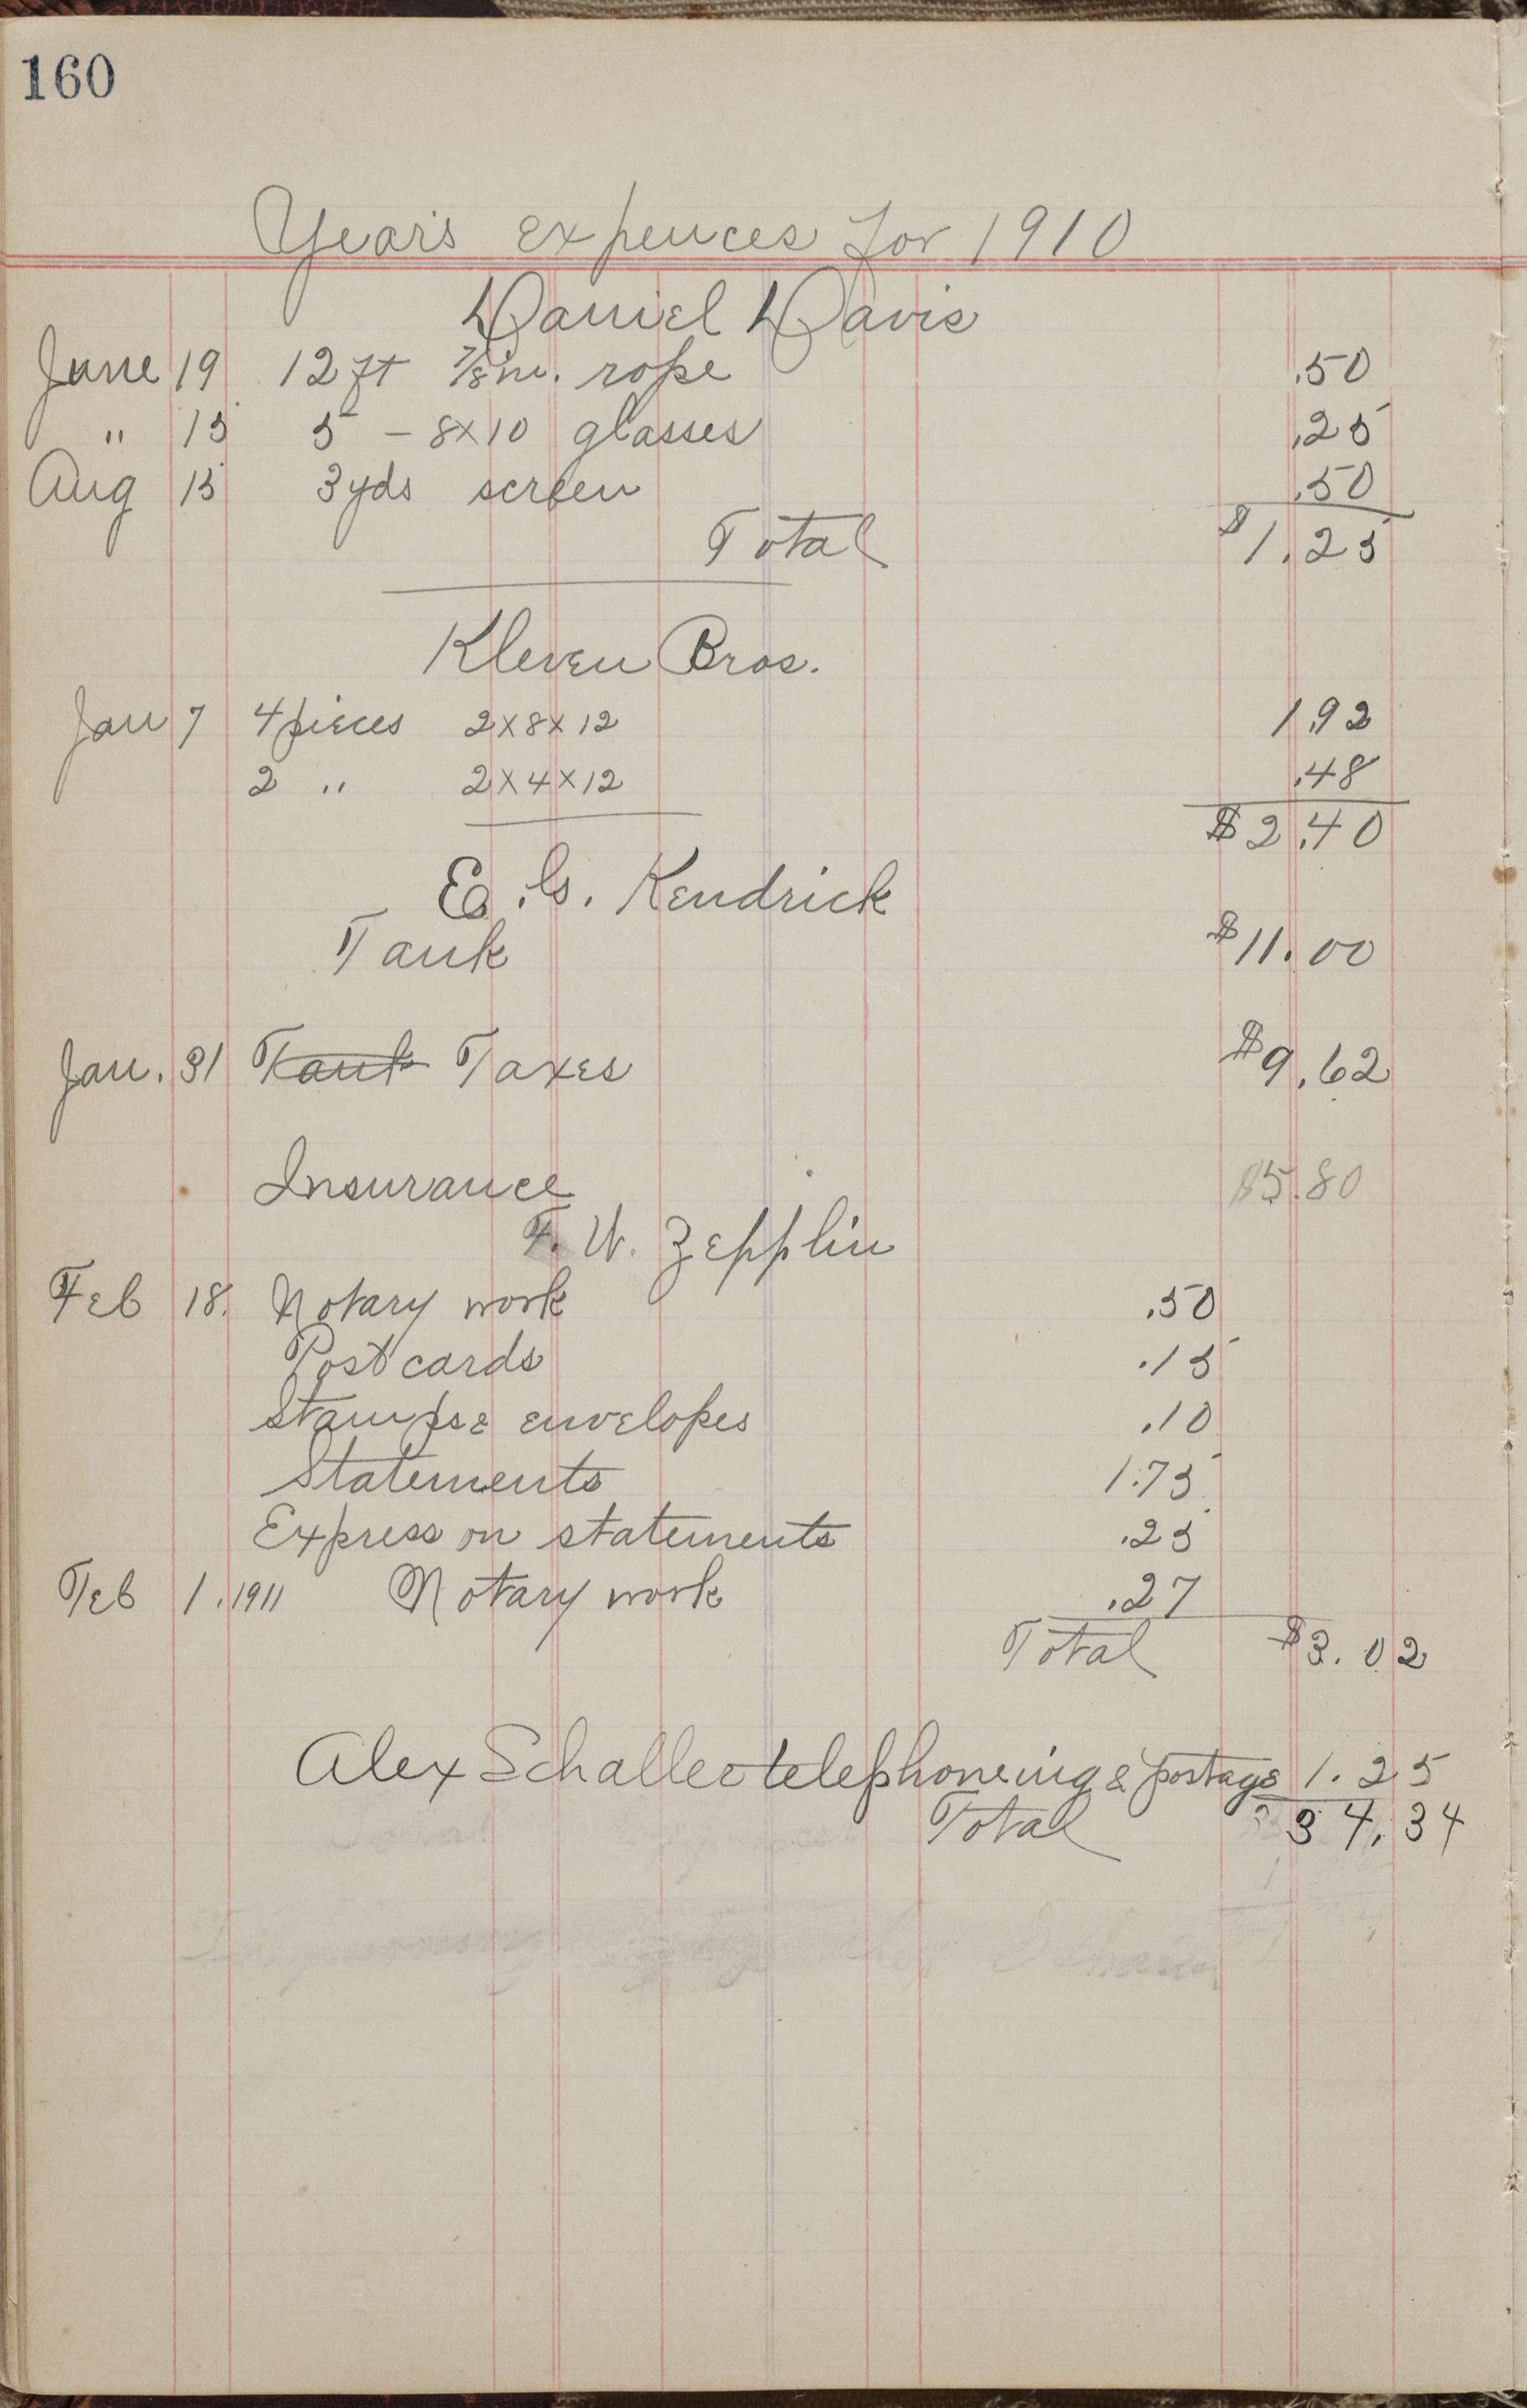 160
Year's expences for 1910
Daniel Davis
June 19 12 ft 7/8 in. rope .50
" 15 5 - 8x10 glasses .25
Aug 15 3 yds screen .50
Total $1.25
Kleven Bros.
Jan 7 4 pieces 2x8x12 1.92
2 " 2x4x12 .48
$2.40
E. G. Kendrick
Tank $11.00
Jan. 31 Tank Taxes $9.62
Insurance $5.80
F. W. Zepplin
Feb 18. Notary work .50
Post cards .15
Stamps & envelopes .10
Statements 1.75
Express on statements .25
Feb 1. 1911 Notary work .27
Total $3.02
Alex Schaller telephoneing & postage 1.25
Total 34.34